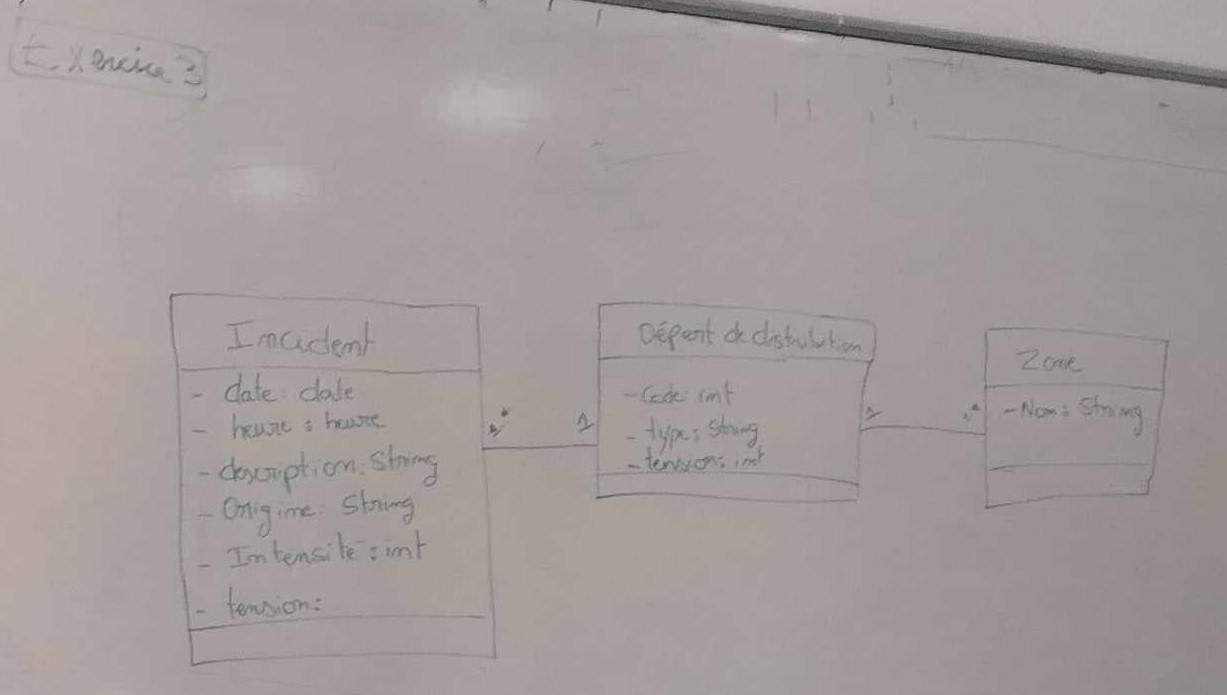 Exercice 3
Incident
- date: date
- heure : heure
- description: String
- Origine: String
- Intensité : int
- tension:
1
Départ de distribution
- Code: int
- type: String
- tension: int
1
Zone
- Nom: String